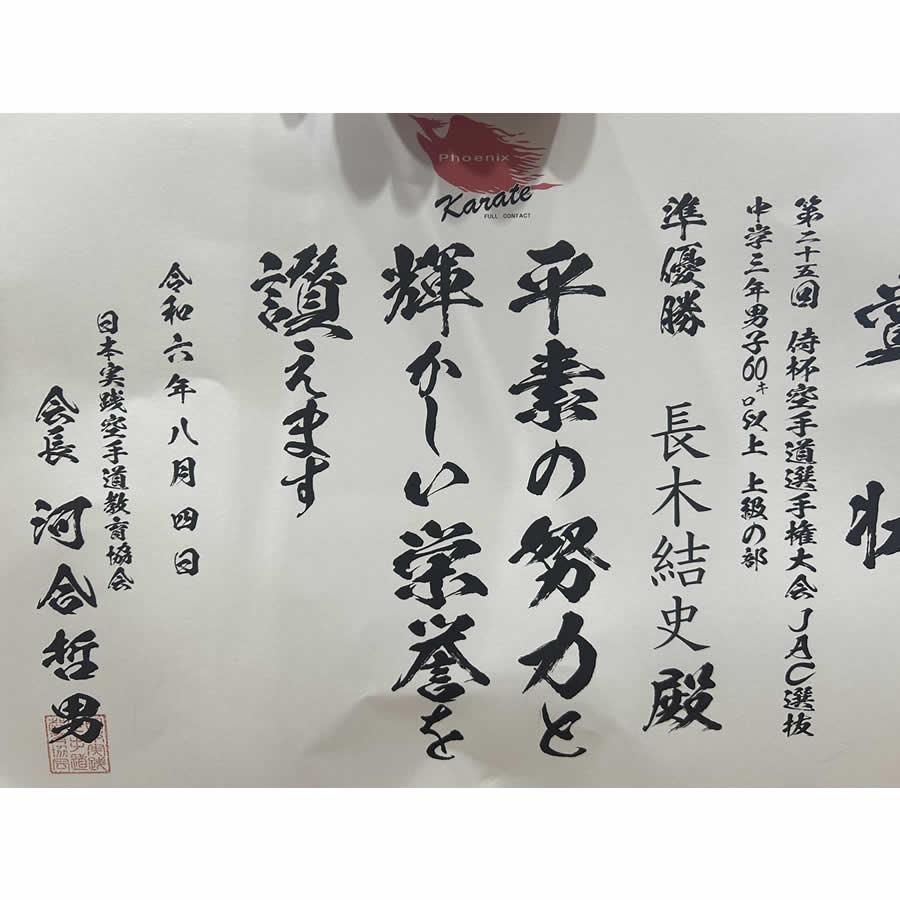 Phoenix
Karate
FULL CONTACT
賞状
第二十五回 侍杯空手道選手権大会 JAC選抜
中学三年男子60キロ以上 上級の部
準優勝 長木結史殿
平素の努力と
輝かしい栄誉を
讃えます
令和六年八月四日
日本実践空手道教育協会
会長 河合哲男